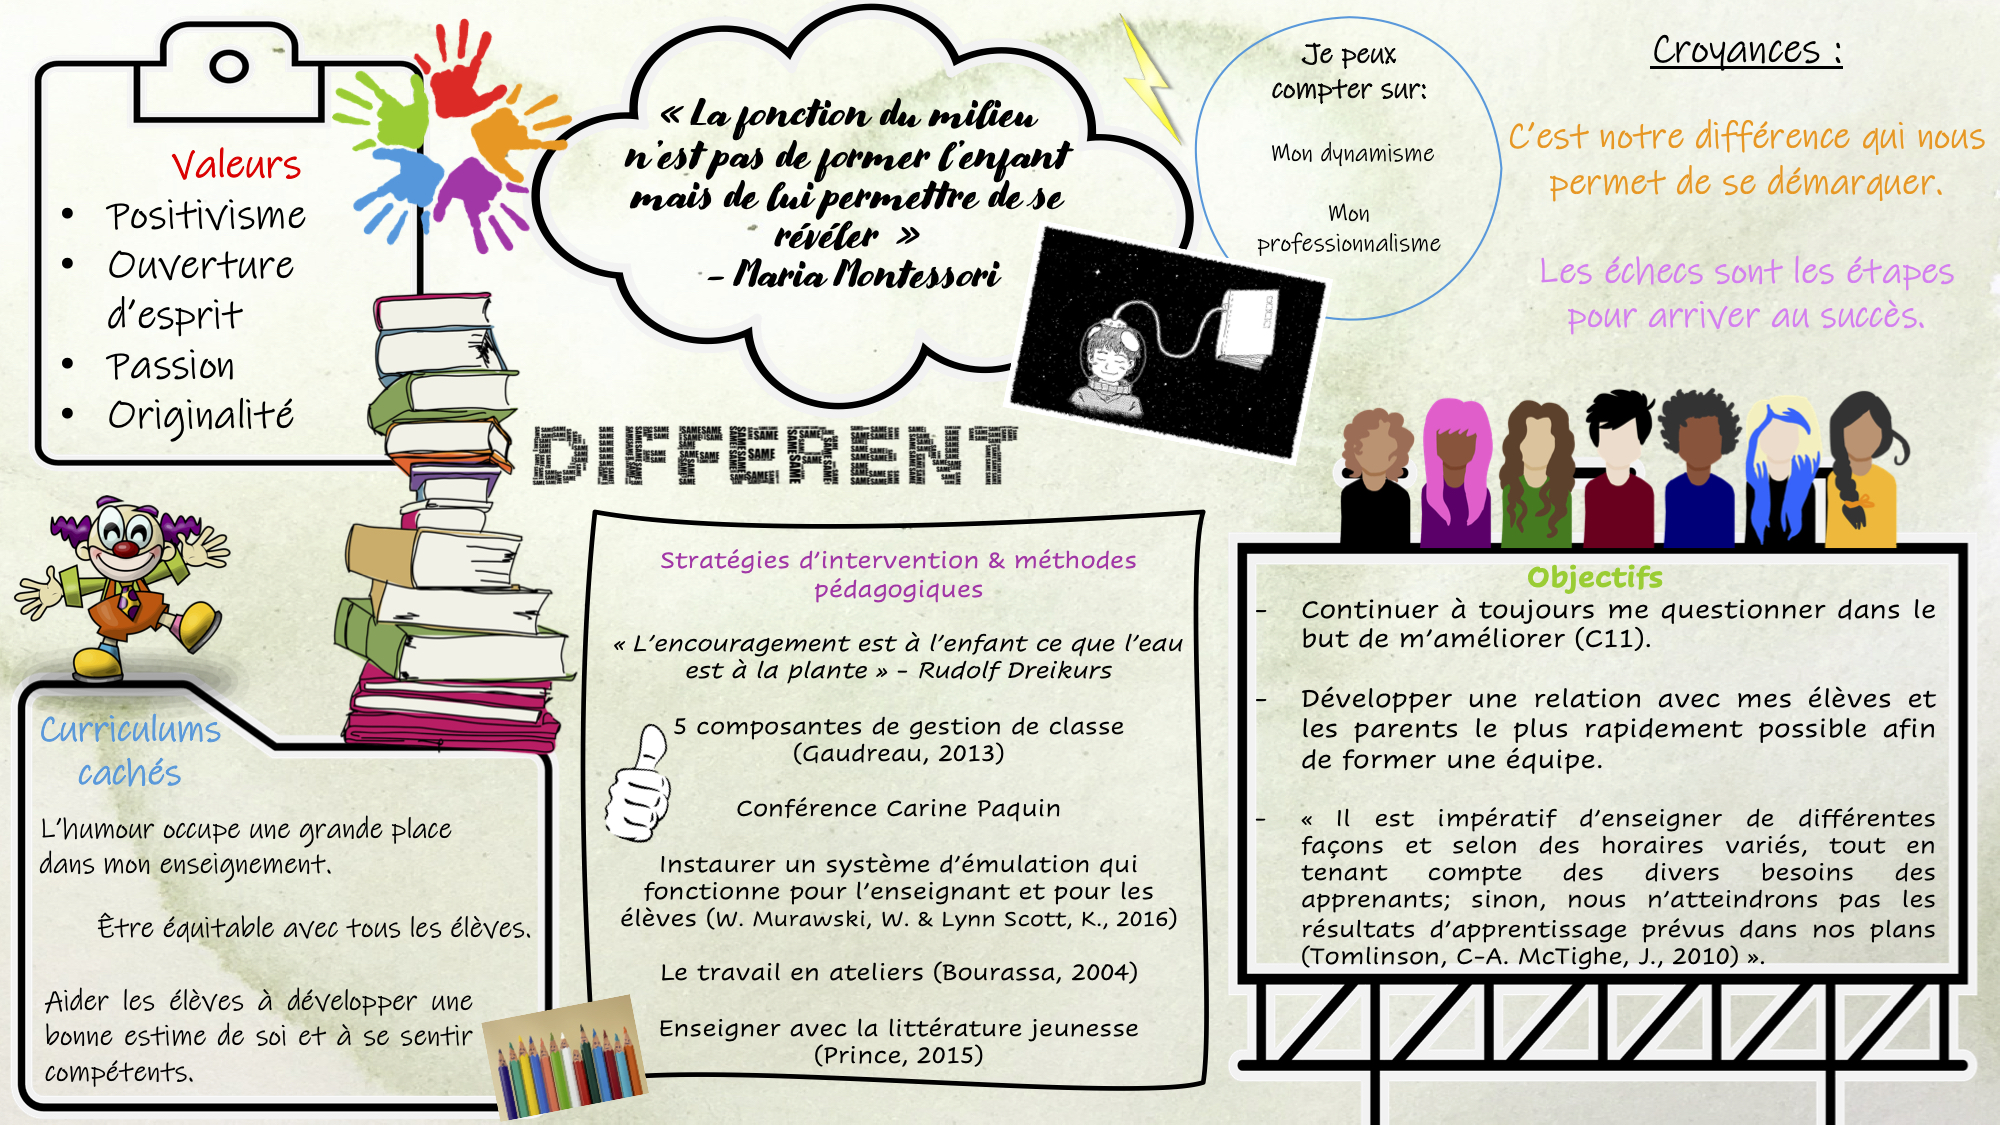 Valeurs
• Positivisme
• Ouverture
d'esprit
• Passion
• Originalité
« La fonction du milieu
n'est pas de former l'enfant
mais de lui permettre de se
révéler »
- Maria Montessori
Je peux
compter sur:
Mon dynamisme
Mon
professionnalisme
Croyances :
C'est notre différence qui nous
permet de se démarquer.
Les échecs sont les étapes
pour arriver au succès.
DIFFERENT
Curriculums
cachés
L'humour occupe une grande place
dans mon enseignement.
Être équitable avec tous les élèves.
Aider les élèves à développer une
bonne estime de soi et à se sentir
compétents.
Stratégies d'intervention & méthodes
pédagogiques
« L'encouragement est à l'enfant ce que l'eau
est à la plante » - Rudolf Dreikurs
5 composantes de gestion de classe
(Gaudreau, 2013)
Conférence Carine Paquin
Instaurer un système d'émulation qui
fonctionne pour l'enseignant et pour les
élèves (W. Murawski, W. & Lynn Scott, K., 2016)
Le travail en ateliers (Bourassa, 2004)
Enseigner avec la littérature jeunesse
(Prince, 2015)
Objectifs
- Continuer à toujours me questionner dans le
but de m'améliorer (C11).
- Développer une relation avec mes élèves et
les parents le plus rapidement possible afin
de former une équipe.
- « Il est impératif d'enseigner de différentes
façons et selon des horaires variés, tout en
tenant compte des divers besoins des
apprenants; sinon, nous n'atteindrons pas les
résultats d'apprentissage prévus dans nos plans
(Tomlinson, C-A. McTighe, J., 2010) ».